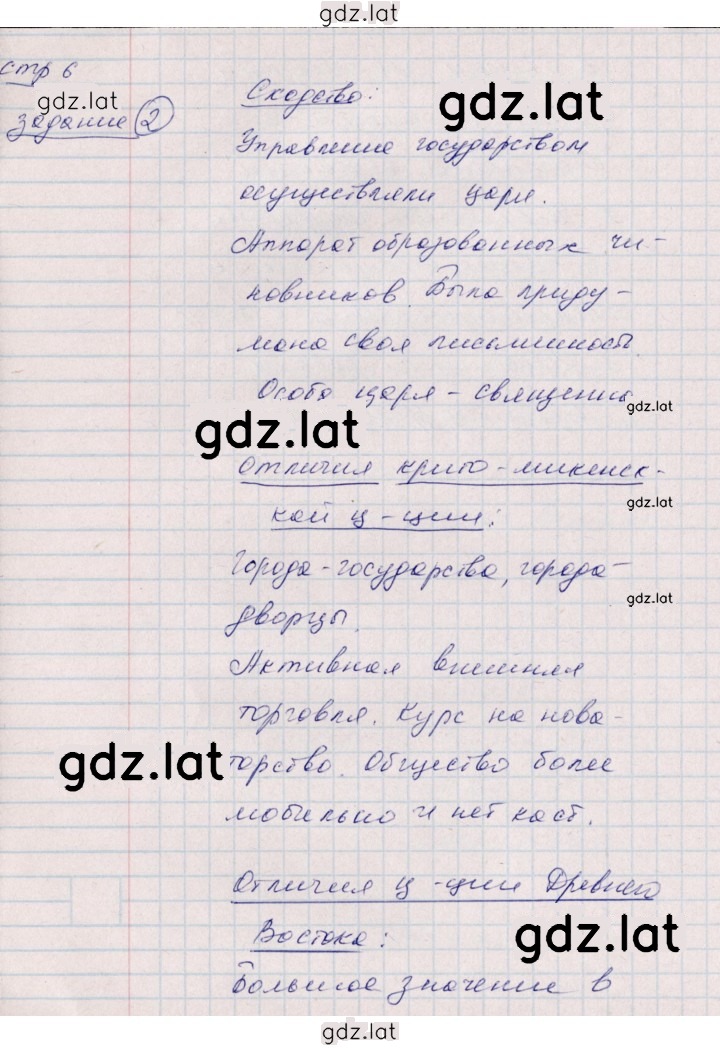 gdz.lat
стр 6
gdz.lat
задание 2
Сходство:
gdz.lat
Управление государством
осуществляли цари.
Аппарат образованных чи-
новников. Была приду-
мана своя письменность.
Особа царя - священна
gdz.lat
gdz.lat
Отличия крито-микенс-
кой ц-ции:
gdz.lat
Города-государства, города-
дворцы.
gdz.lat
Активная внешняя
торговля. Курс на нова-
торство. Общество более
gdz.lat
мобильно и нет каст.
Отличия ц-ции Древнего
Востока:
gdz.lat
Большое значение в
gdz.lat